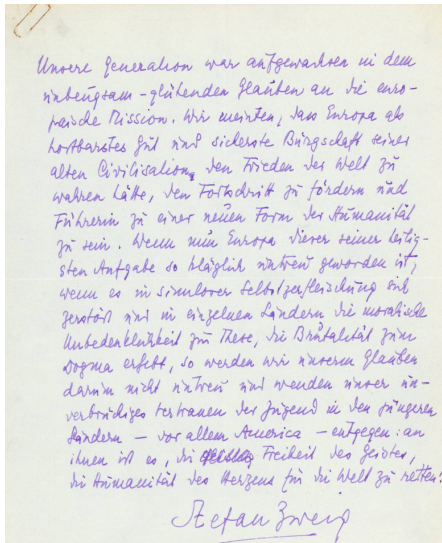 Unsere Generation war aufgewachsen in dem
unbeugsam-glühenden Glauben an die euro-
päische Mission. Wir meinten, dass Europa als
kostbarstes Gut und sicherste Bürgschaft seiner
alten Civilisation, den Frieden der Welt zu
wahren hätte, den Fortschritt zu fördern und
Führerin zu einer neuen Form der Humanität
zu sein. Wenn nun Europa dieser seiner heilig-
sten Aufgabe so kläglich untreu geworden ist,
wenn es in sinnloser Selbstzerfleischung sich
zerstört und in einzelnen Ländern die moralische
Unbedenklichkeit zur These, die Brutalität zum
Dogma erhebt, so werden wir unserm Glauben
darum nicht untreu und wenden unser un-
verbrüchliches Vertrauen der Jugend in den jüngeren
Ländern – vor allem America – entgegen: an
ihnen ist es, die Freiheit des Geistes,
die Humanität des Herzens für die Welt zu retten!
Stefan Zweig